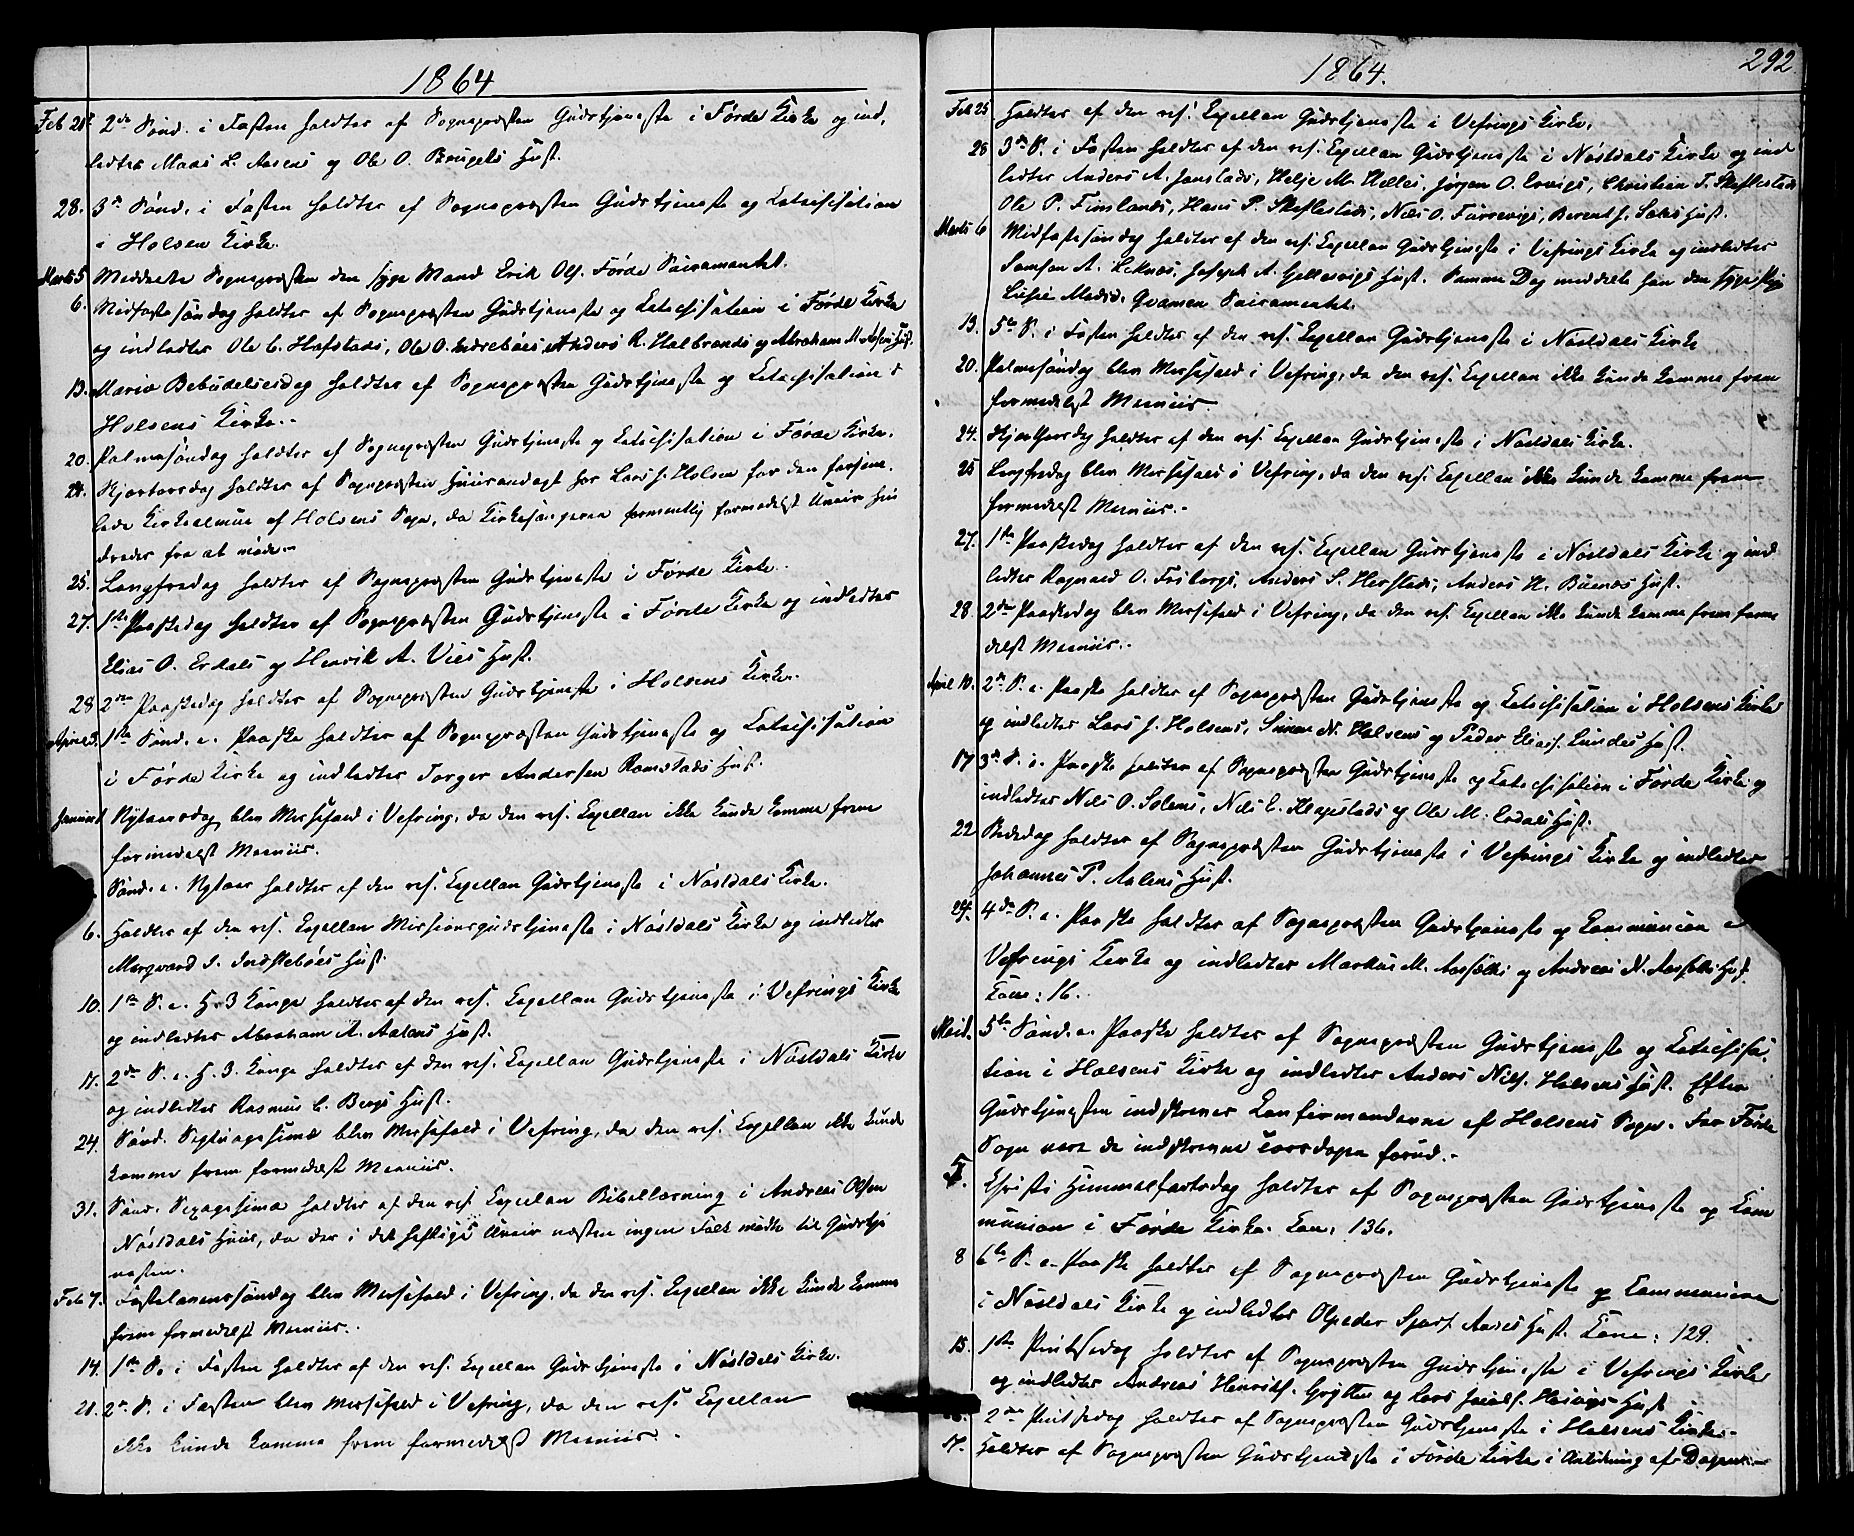 1864
Feb 21. 2den Sønd. i Fasten holdtes af Sognepræsten Gudstjeneste i Førde Kirke og ind,
ledtes Mads L. Aasens og Ole O. Hust.
28. 3die Sønd. i Fasten holdtes af Sognepræsten Gudstjeneste og Katechisation
i Holsen Kirke.
Marts 5 Meddeelte Sognepræsten den syge Mand Erik Ols. Førde Sacramentet.
6. Midfastesøndag holdtes af Sognepræsten Gudstjeneste og Katechisation i Førde Kirke
og indledtes Ole C. Hafstads, Ole O. Indrebøes, Anders R. Halbrends og Abraham M. Hust.
13. Mariæ Bebudelsesdag holdtes af Sognepræsten Gudstjeneste og Katechisation i
Holsens Kirke.
20. Palmesøndag holdtes af Sognepræsten Gudstjeneste og Katechisation i Førde Kirke.
24. Skjærtorsdag holdtes af Sognepræsten Huusandagt hos Lars J. Holsen for den forsam,
lede Kirkealmue af Holsens Sogn, da Kirkesangeren formentlig formedelst Uveir hin
dredes fra at møde.
25. Langfredag holdtes af Sognepræsten Gudstjeneste i Førde Kirke.
27. 1ste Paaskedag holdtes af Sognepræsten Gudstjeneste i Førde Kirke og indledtes
Elias O. Erdals og Henrik A. Vies Hust.
28 2den Paaskedag holdtes af Sognepræsten Gudstjeneste i Holsens Kirke.
April 3. 1ste Sønd. e. Paaske holdtes af Sognepræsten Gudstjeneste og Katechisation
i Førde Kirke og indledtes Torger Andersen Ramstads Hust.
Januar 1 Nytaarsdag blev Messefald i Vefring, da den res. Capellan ikke kunde komme frem
formedelst Meeniis.
Sønd. e. Nytaar holdtes af den res. Capellan Gudstjeneste i Nøstdals Kirke.
6. Holdtes af den res. Capellan Missionsgudstjeneste i Nøstdals Kirke og indledtes
Hust.
10. 1ste S. e. H. 3 Konge holdtes af den res. Capellan Gudstjeneste i Vefrings Kirke
og indledtes Abraham A. Aalens Hust.
17. 2den S. e. H. 3. Konge holdtes af den res. Capellan Gudstjeneste i Nøstdals Kirke
og indledtes Rasmus C. Bergs Hust.
24. Sønd. Septuagesima blev Messefald i Vefring, da den res. Capellan ikke kunde
komme frem formedelst Meeniis.
31. Sønd. Sexagesima holdtes af den res. Capellan Bibellæsning i Andreas Olsen
Nøstdals Huus, da der i det heftige Uveir næsten ingen Folk mødte til Gudstje
nesten.
Feb 7. Fastelavenssøndag blev Messefald i Vefring, da den res. Capellan ikke kunde komme
frem formedelst Meeniis.
14. 1ste S. i Fasten holdtes af den res. Capellan Gudstjeneste i Nøstdals Kirke.
21. 2den S. i Fasten blev Messefald i Vefring, da den res. Capellan
ikke kunde komme frem formedelst Meeniis.
1864. 292
Feb 25 Holdtes af den res. Capellan Gudstjeneste i Vefrings Kirke.
28 3die S. i Fasten holdtes af den res. Capellan Gudstjeneste i Nøstdals Kirke og ind
ledtes Anders A. Jonstads, Helje M. Helles, Jørgen O. Christian T.
Ole P. Fimlands, Hans P. Niels O. Berent J. Hust.
Marts 6 Midfastesøndag holdtes af den res. Capellan Gudstjeneste i Vefrings Kirke og indledtes
Samson A. Joseph A. Gjellevigs Hust. Samme Dag meddelte han den syge Pige
Lisie Madsd. Qvamen Sacramentet.
13. 5te S. i Fasten holdtes af den res. Capellan Gudstjeneste i Nøstdals Kirke
20. Palmesøndag blev Messefald i Vefring, da den res. Capellan ikke kunde komme frem
formedelst Meeniis.
24. Skjærthorsdag holdtes af den res. Capellan Gudstjeneste i Nøstdals Kirke.
25 Langfredag blev Messefald i Vefring, da den res. Capellan ikke kunde komme frem
formedelst Meeniis.
27. 1ste Paaskedag holdtes af den res. Capellan Gudstjeneste i Nøstdals Kirke og ind
ledtes Ragnald O. Friborgs, Anders S. Herstads, Anders H. Hust.
28. 2den Paaskedag blev Messefald i Vefring, da den res. Capellan ikke kunde komme frem forme
delst Meeniis.
April 10. 2den S. e. Paaske holdtes af Sognepræsten Gudstjeneste og Katechisation i Holsens Kirke
og indledtes Lars J. Holsens, Simon N. Holsens og Peder Elias. Lundes Hust.
17 3die S. e. Paaske holdtes af Sognepræsten Gudstjeneste og Katechisation i Førde Kirke og
indledtes Niels O. Solems, Niels C. og Ole M. Erdals Hust.
22 Bededag holdtes af Sognepræsten Gudstjeneste i Vefrings Kirke og indledtes
Johannes P. Aalens Hust.
24. 4de S. e. Paaske holdtes af Sognepræsten Gudstjeneste og Communion i
Vefrings Kirke og indledtes Markus M. og Andreas N. Hust.
Com: 16.
Mai 1. 5te Sønd. e. Paaske holdtes af Sognepræsten Gudstjeneste og Katechisa,
tion i Holsens Kirke og indledtes Anders Nils. Holsens Hust. Efter
Gudstjenesten indskreves Confirmanderne af Holsens Sogn. For Førde
Sogn vare de indskrevne Torsdagen forud.
5. Christi Himmelfartsdag holdtes af Sognepræsten Gudstjeneste og Com
munion i Førde Kirke. Com. 136.
8 6te S. e. Paaske holdtes af Sognepræsten Gudstjeneste og Communion
i Nøstdals Kirke og indledtes Olpeder Hust. Com: 129.
15. 1ste Pintsedag holdtes af Sognepræsten Gudstjeneste i Vefrings Kirke
og indledtes Andreas Henriks. Grytten og Lars Hust
16. 2den Pintsedag holdtes af Sognepræsten Gudstjeneste i Holsens Kirke.
17. Holdtes af Sognepræsten Gudstjeneste i Førde Kirke i Anledning af Dagen